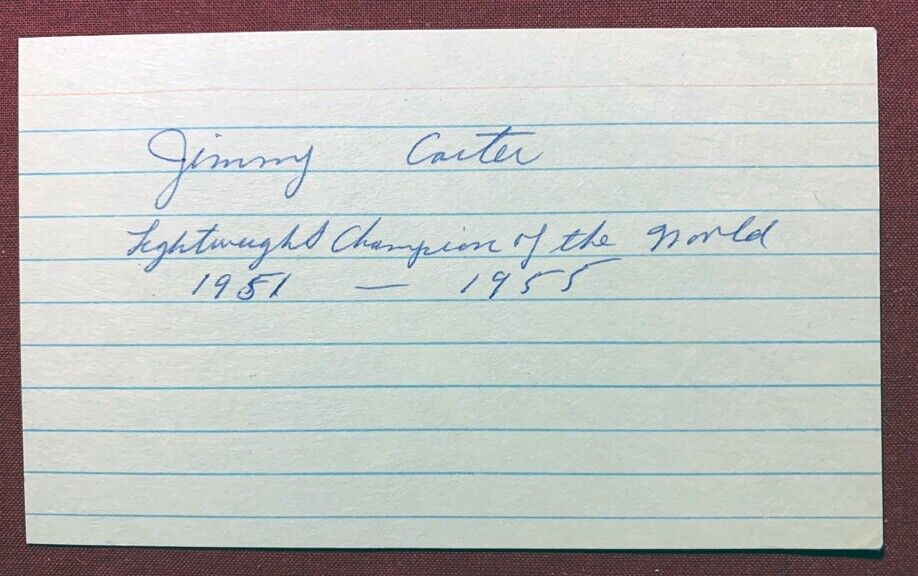 Jimmy Carter
Lightweight Champion of the World
1951 — 1955